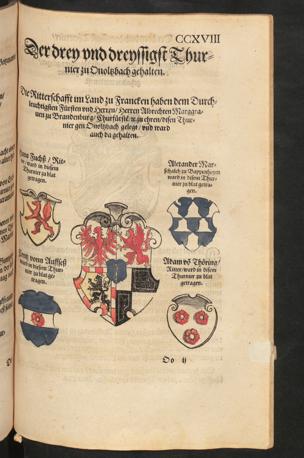 CCXVIII
Der drey vnd dreyssigst Thur-
nier zu Onoltzbach gehalten.
Die Ritterschafft im Land zu Francken haben dem Durch-
leuchtigsten Fürsten vnd Herren / Herren Albrechten Marggra-
uen zu Brandenburg / Churfürst zu ehren / disen Thur-
nier gen Onoltzbach gelegt / vnd ward
auch da gehalten.
Fuchß / Rit-
ter / ward in disem
Thurnier zu blat
getragen.
Alexander Mar-
schalck zu Bappenheym
ward in disem Thur-
nier zu blat getra-
gen.
vonn Auffseß
ward in disem Thur-
nier zu blat ge-
tragen.
Adam võ Thöring
Ritter / ward in disem
Thurnier zu blat
getragen.
Oo ij